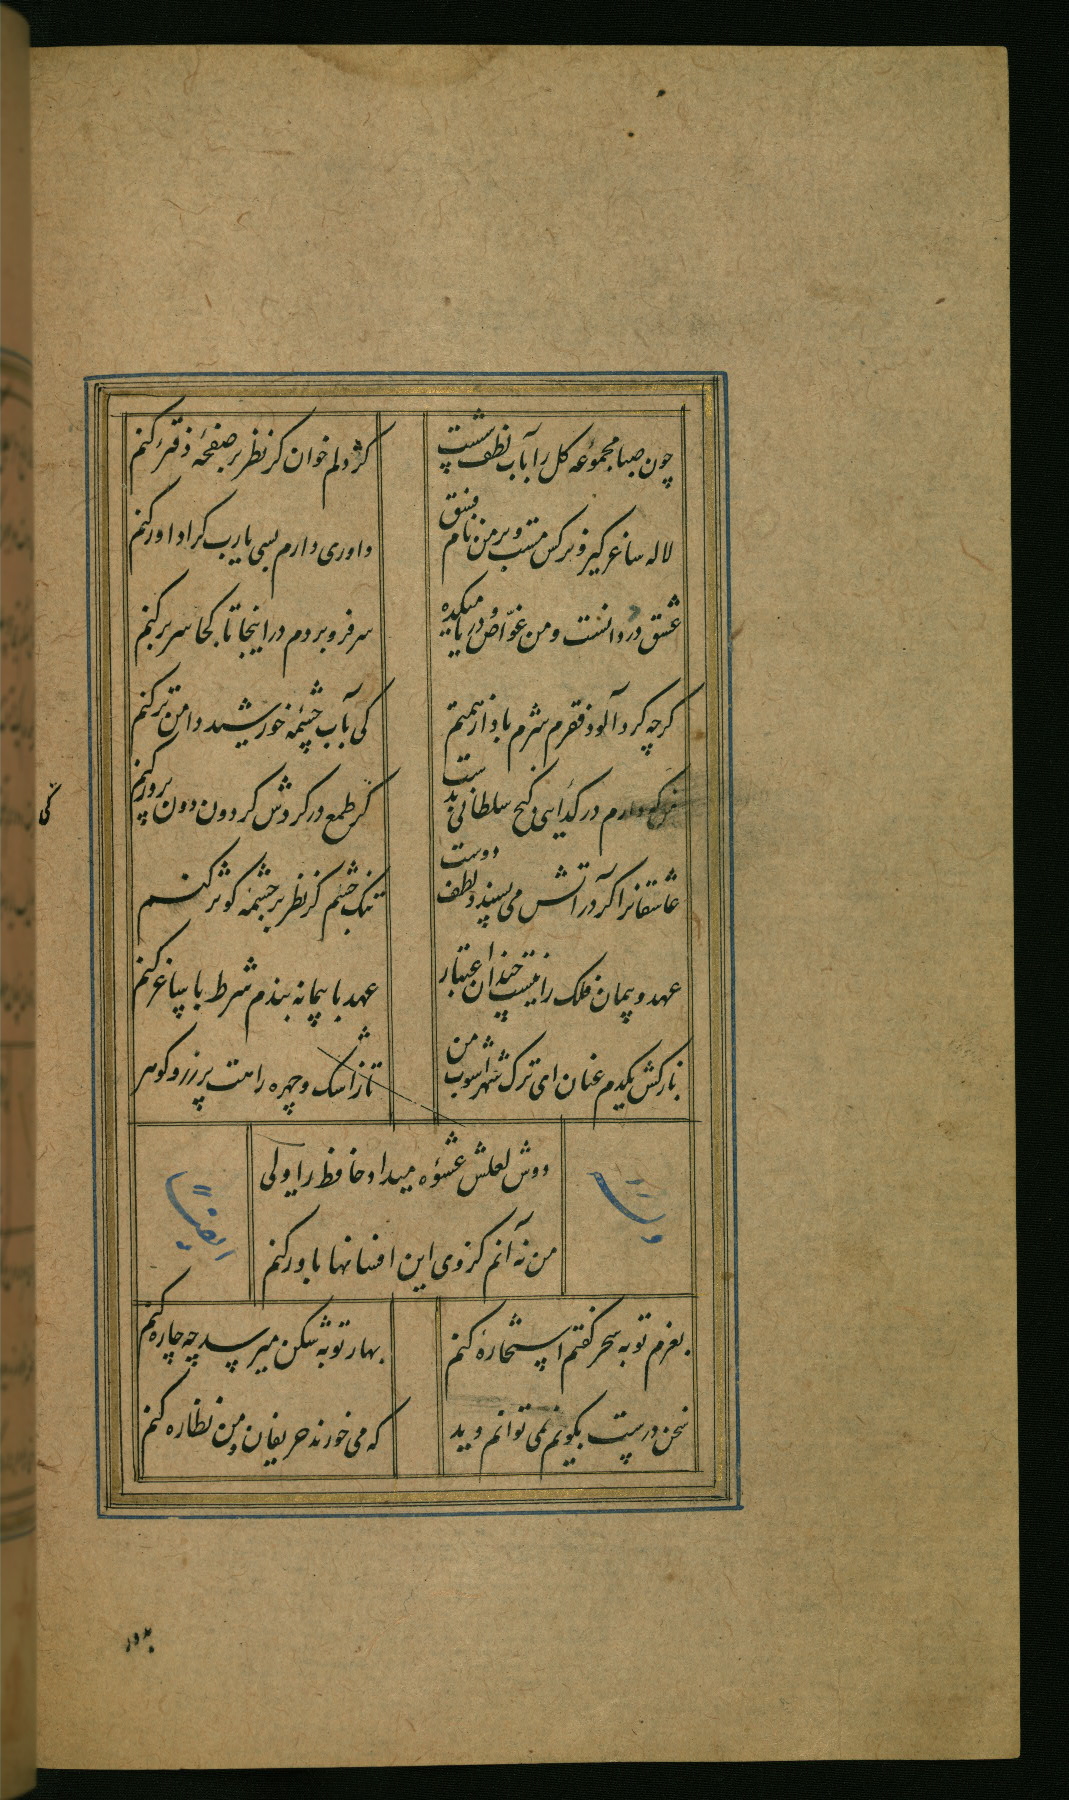 چون صبا مجموعه کل را بآب لطف شست
کژ دلم خوان کر نظر بر صفحهٔ دفتر کنم
لاله ساغر کیر و نرکس مست و بر من نام فسق
داوری دارم بسی یارب کرا داور کنم
عشق دردانست و من غوّاص و دریا میکده
سر فرو بردم در اینجا تا کجا سر بر کنم
کرچه کرد آلود فقرم شرم باد از همتم
کی بآب چشمهٔ خورشید دامن تر کنم
من که دارم در کدایی کنج سلطانی بدست
کی طمع در کردش کردون دون پرور کنم
عاشقانرا کر در آتش می پسندد لطف دوست
تنک چشم کر نظر بر چشمه کوثر کنم
عهد و پیمان فلک را نیست چندان اعتبار
عهد با پیمانه بندم شرط با ساغر کنم
باز کش یکدم عنان ای ترک شهر آشوب من
تا ز اشک و چهره راهت پر زر و کوهر
دوش لعلش عشوه میداد حافظ را ولی
من نه آنم کز وی این افسانها باور کنم
وله
ایضاً
بعزم توبه سحر کفتم استخاره کنم
بهار توبه شکن میرسد چه چاره کنم
سخن درست بکویم نمی توانم دید
که می خورند حریفان و من نظاره کنم
کی
بدور